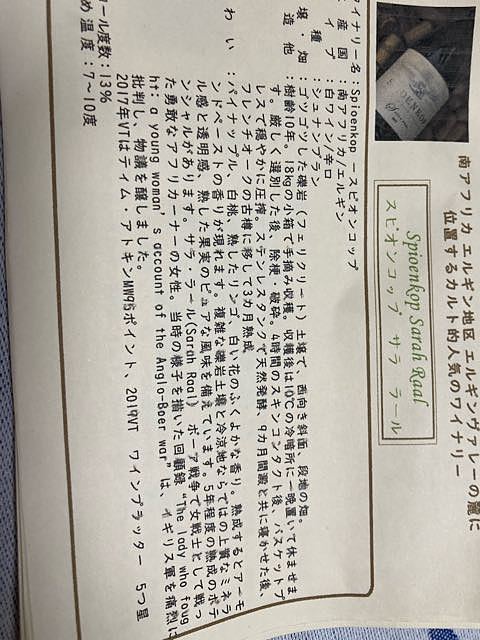 南アフリカ エルギン地区 エルギンヴァレーの麓に
位置するカルト的人気のワイナリー
Spioenkop Sarah Raal
スピオンコップ サラ ラール
イナリー名：Spioenkop －スピオンコップ
産国：南アフリカ/エルギン
イプ：白ワイン/辛口
種：シュナンブラン
壌・畑：ゴツゴツした礫岩（フェリクリート）土壌で、西向き斜面、段地の畑。
造 他：樹齢10年。18kgの小箱で手摘み収穫。収穫後は10℃の冷暗所に一晩置いて休ませま
す。厳しく選別した後、除梗・破砕。4時間のスキンコンタクト後、バスケットプ
レスで穏やかに圧搾。ステンレスタンクで天然発酵、9カ月間澱と共に寝かせた後、
フレンチオークの古樽に移して3カ月熟成
わい：パイナップル、白桃、熟したリンゴ、白い花のふくよかな香り。熟成するとアーモ
ンドペーストの香りが現れます。複雑な礫岩土壌と冷涼地ならではの上質なミネラ
ル感と透明感、熟した果実のピュアな風味を備えています。5年程度の熟成のポテ
ンシャルがあります。サラ・ラール(Sarah Raal) ボーア戦争で女戦士として戦っ
た勇敢なアフリカーナーの女性。当時の様子を描いた回顧録 “The lady who foug
ht: a young woman's account of the Anglo-Boer war” は、イギリス軍を痛烈に
批判し、物議を醸しました。
2017年VTはティム・アトキンMW95ポイント、2019VT ワインプラッター 5つ星
ール度数：13％
め温度：7～10度